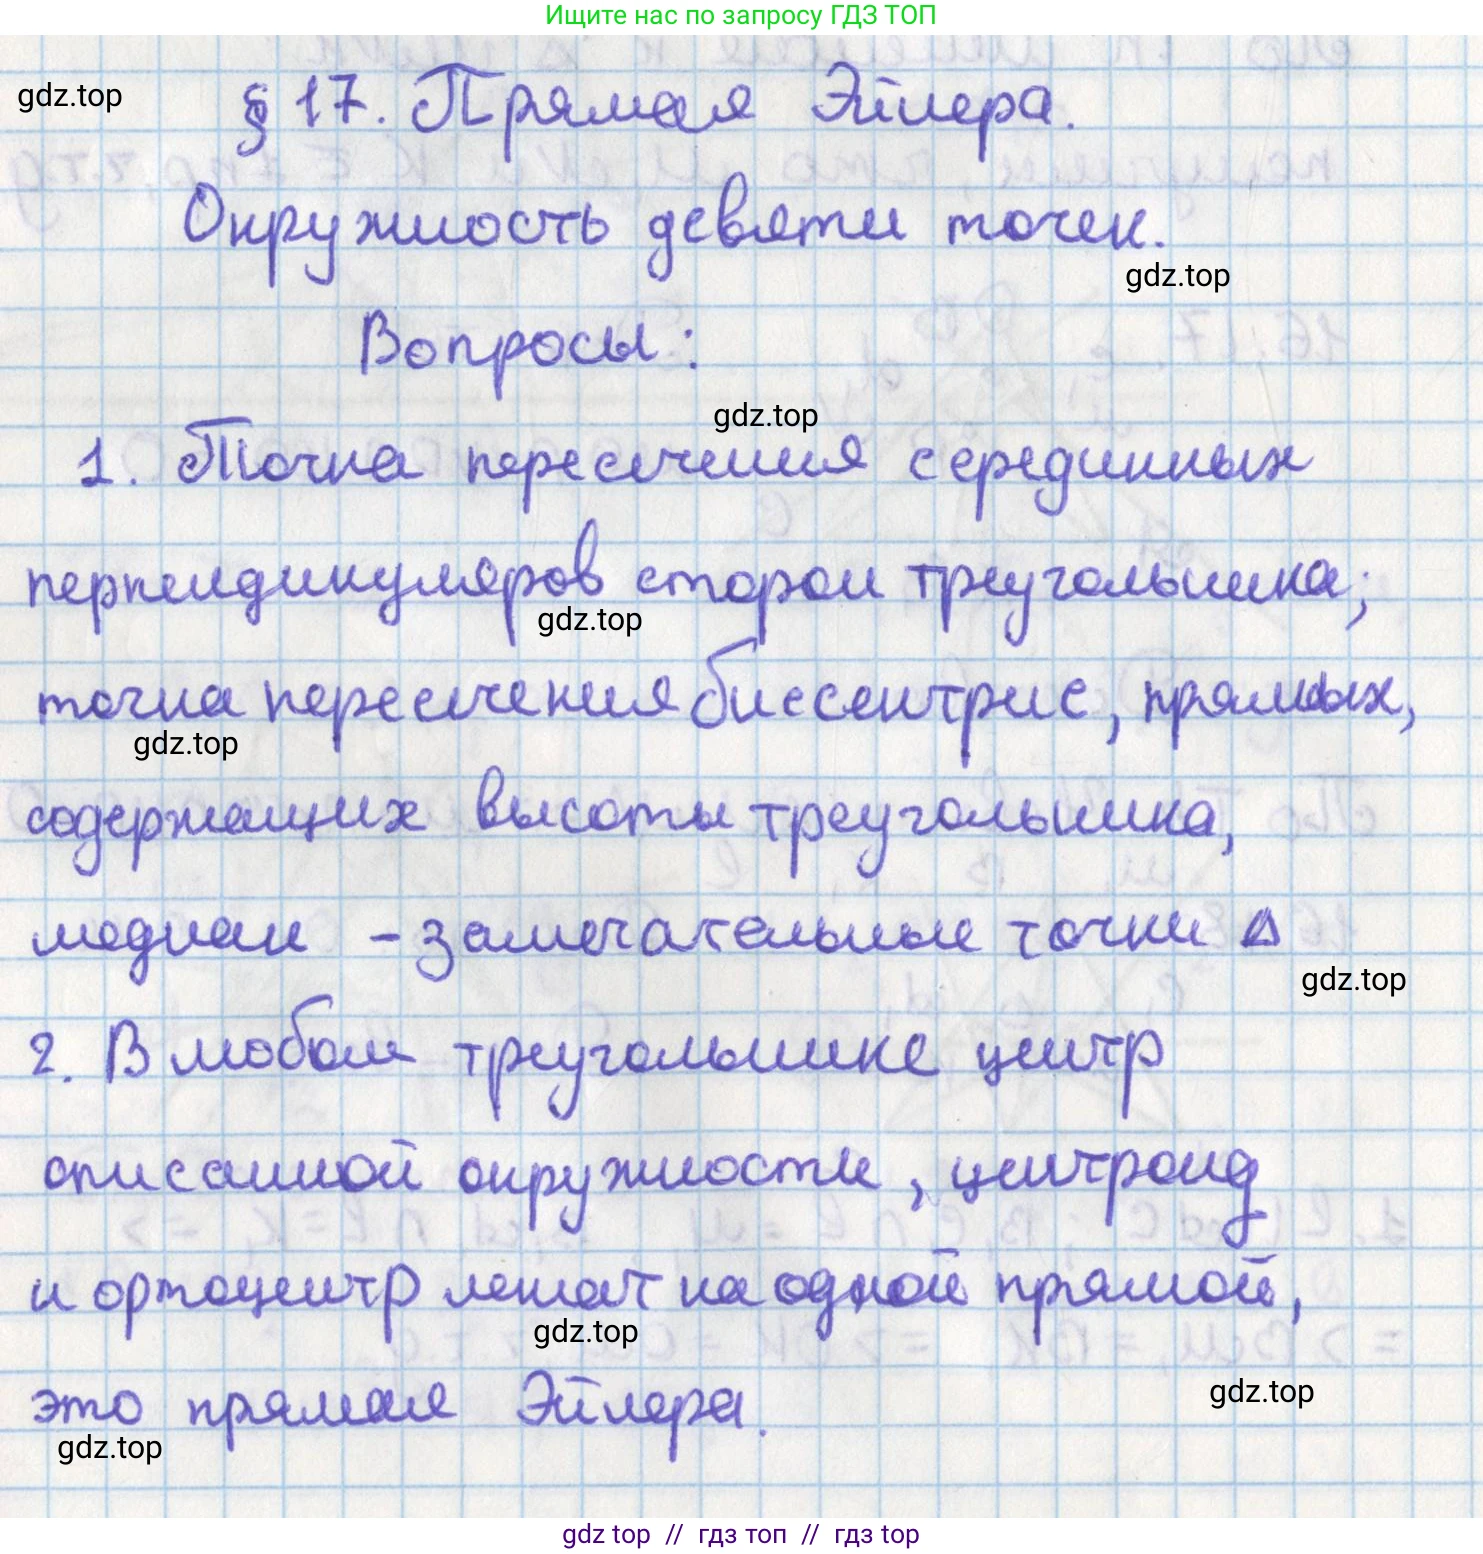 Ищите нас по запросу ГДЗ ТОП
gdz.top
§ 17. Прямая Эйлера.
Окружность девяти точек.
gdz.top
Вопросы:
gdz.top
1. Точка пересечения серединных
перпендикуляров сторон треугольника;
gdz.top
точка пересечения биссектрис, прямых,
gdz.top
содержащих высоты треугольника,
медиан - замечательные точки Δ
gdz.top
2. В любом треугольнике центр
описанной окружности, центроид
и ортоцентр лежат на одной прямой,
gdz.top
это прямая Эйлера.
gdz.top
gdz.top
gdz top // гдз топ // гдз top